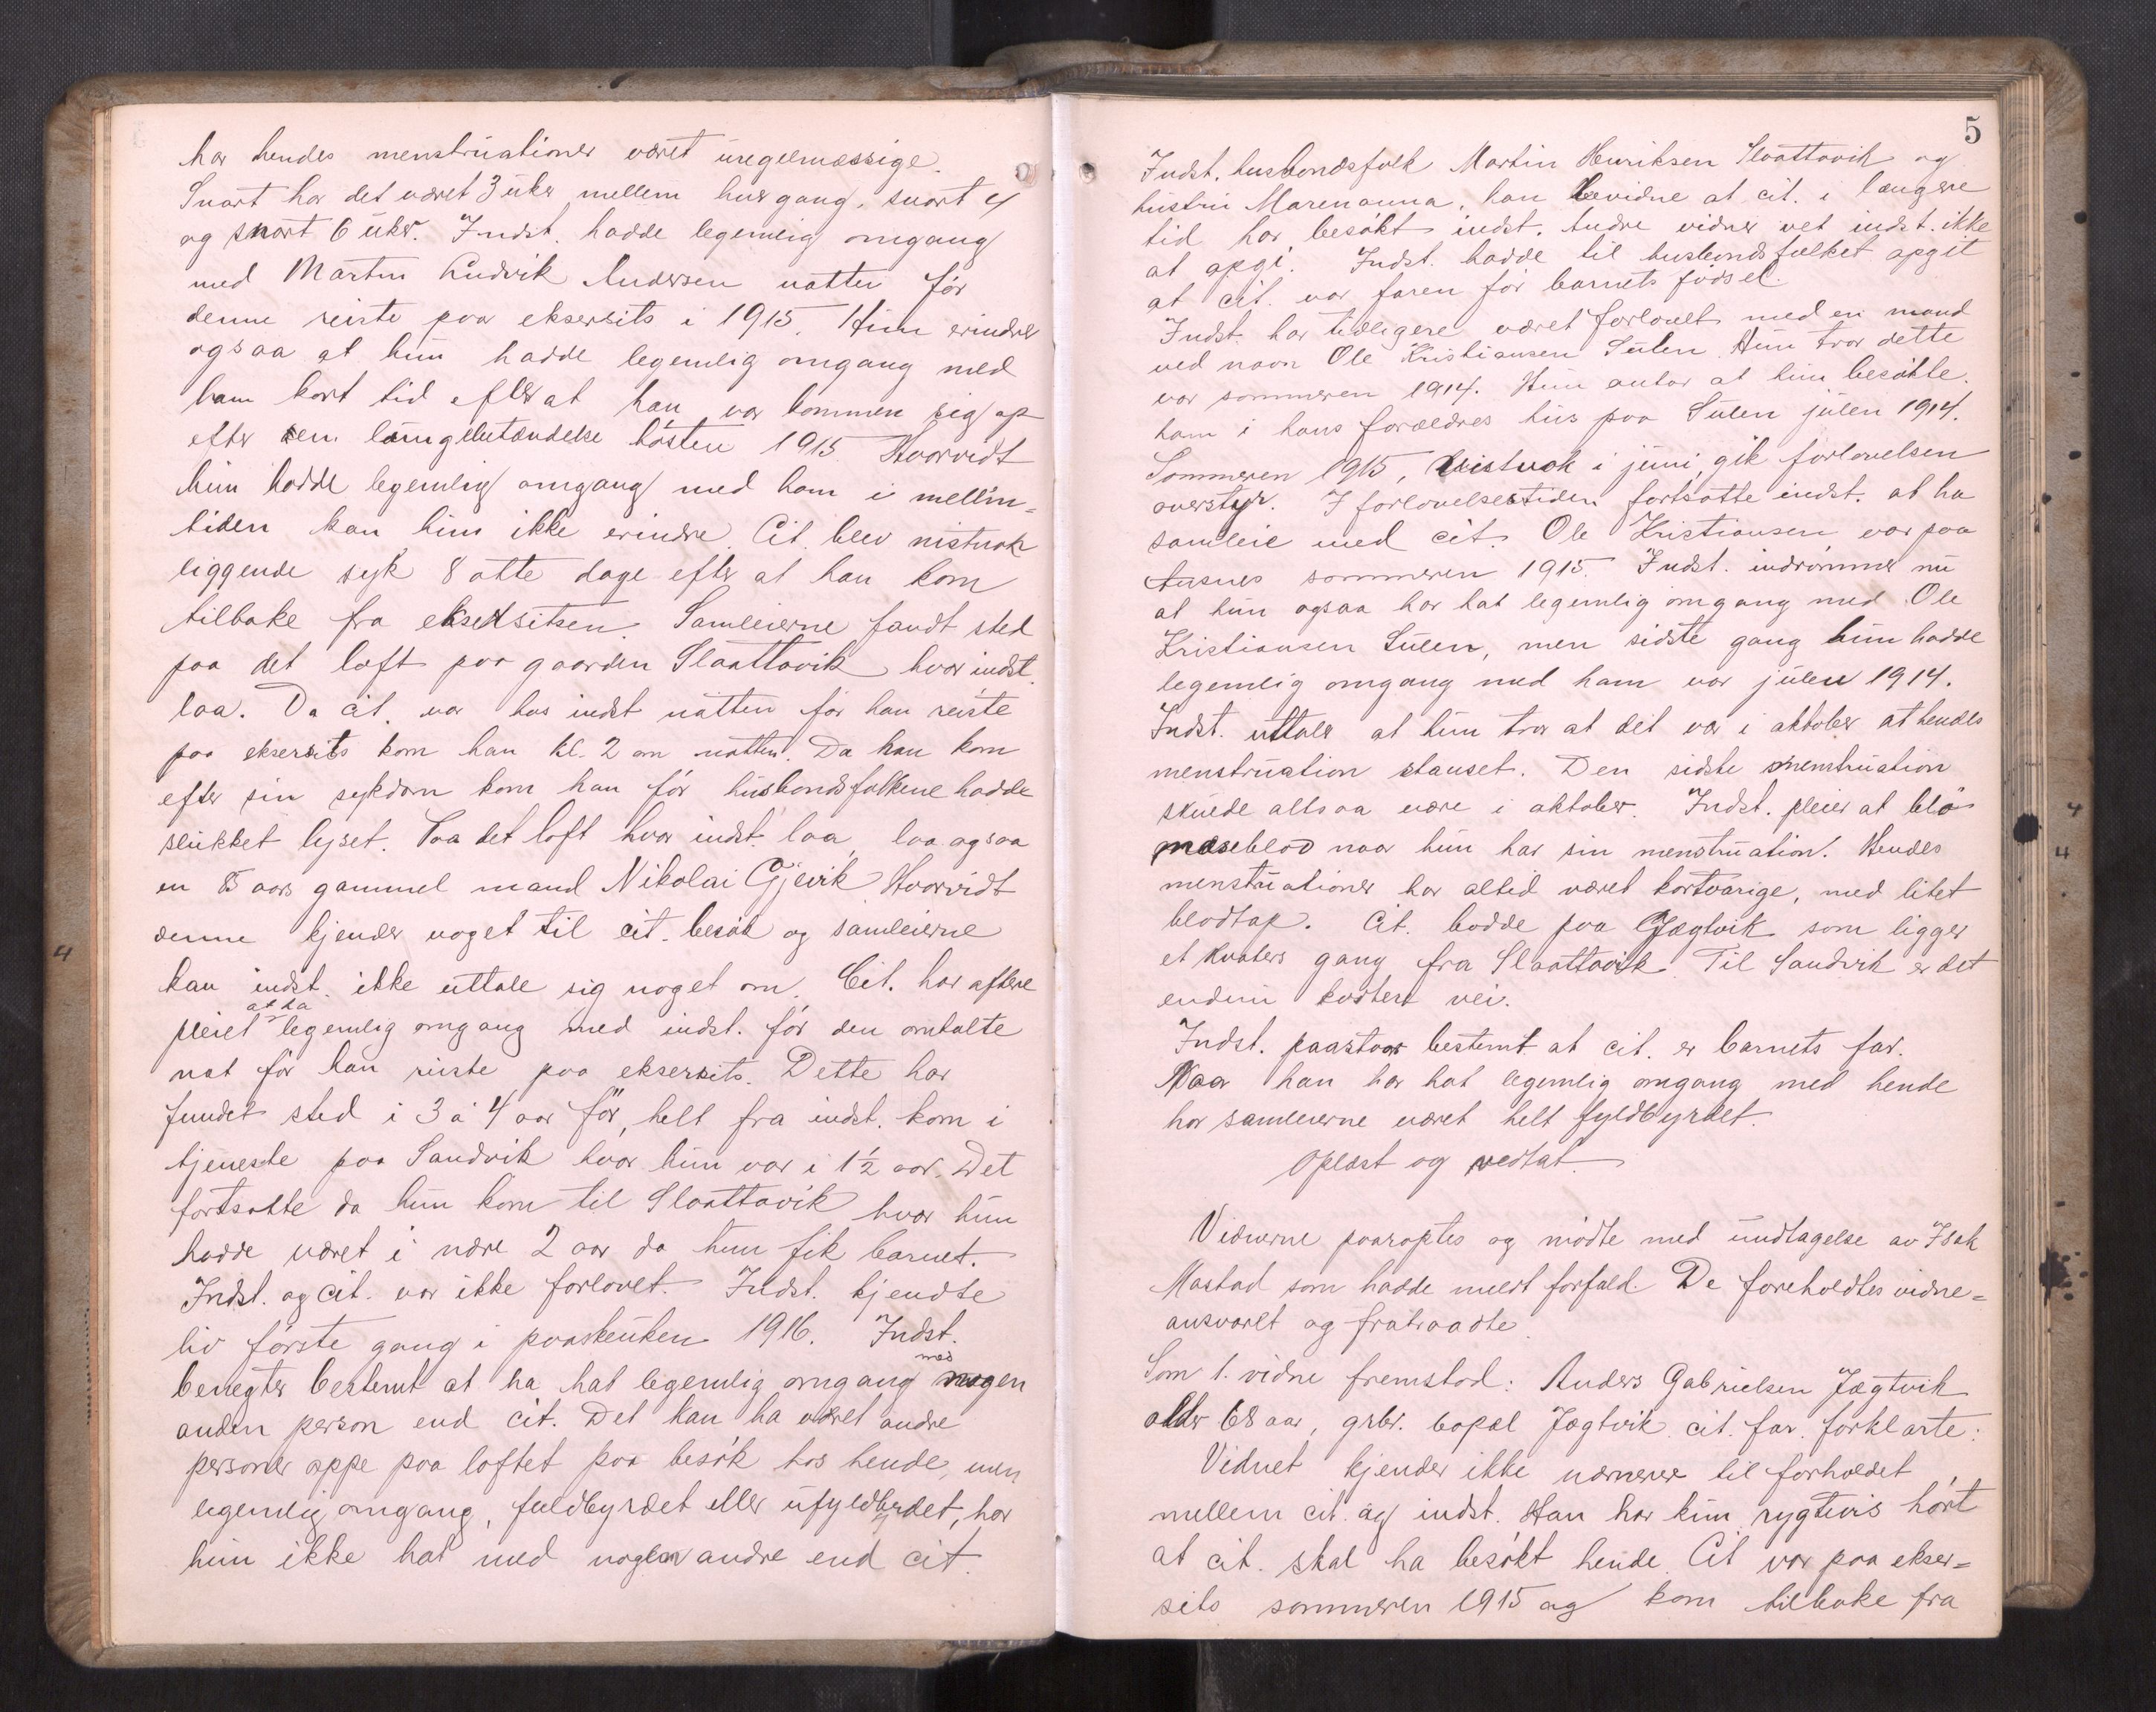 har hendes menstruationer været uregelmæssige.
Snart har det været 3 uker mellem hver gang, snart 4
og snart 6 uker. Indst. hadde legemlig omgang
med Martin Ludvik Andersen natten før
denne reiste paa eksersits i 1915. Hun erindrer
ogsaa at hun hadde legemlig omgang med
ham kort tid efter at han var kommen sig op
efter en lungebetændelse høsten 1915. Hvorvidt
hun hadde legemlig omgang med ham i mellem=
tiden kan hun ikke erindre. Cit. blev nistnok
liggende syk 8 otte dage efter at han kom
tilbake fra eksersitsen. Samleierne fandt sted
paa det loft paa gaarden Slaattavik hvor indst.
laa. Da cit. var hos indst natten før han reiste
paa eksersits kom han kl. 2 om natten. Da han kom
efter sin sykdom kom han før husbondsfolkene hadde
slukket lyset. Paa det loft hvor indst. laa, laa ogsaa
en 85 aars gammel mand Nikolai Gjevik. Hvorvidt
denne kjender noget til cit. besøk og samleierne
kan indst. ikke uttale sig noget om. Cit. har oftere
pleiet at ha legemlig omgang med indst. før den omtalte
nat før han reiste paa eksersits. Dette har
fundet sted i 3 à 4 aar før, helt fra indst. kom i
tjeneste paa Sandvik hvor hun var i 1½ aar. Det
fortsatte da hun kom til Slaattavik hvor hun
hadde været i nære 2 aar da hun fik barnet.
Indst. og cit. var ikke forlovet. Indst. kjendte
liv første gang i paaskeuken 1916. Indst.
benegter bestemt at ha hat legemlig omgang med nogen
anden person end cit. Det kan ha været andre
personer oppe paa loftet paa besøk hos hende, men
legemlig omgang, fuldbyrdet eller ufyldbyrdet, har
hun ikke hat med nogen andre end cit.
5
Indst. husbondsfolk Martin Henriksen Slaattavik og
hustru Marenanna, kan bevidne at cit. i længere
tid har besøkt indst. Andre vidner vet indst. ikke
at opgi. Indst. hadde til husbondsfolket opgit
at cit. var faren før barnets fødsel.
Indst. har tidligere været forlovet med en mand
ved navn Ole Kristiansen Sulen. Hun tror dette
var sommeren 1914. Hun antar at hun besøkte
ham i hans forældres hus paa Sulen julen 1914.
Sommeren 1915, vistnok i juni, gik forlovelsen
overstyr. I forlovelsestiden fortsatte indst. at ha
samleie med cit. Ole Kristiansen var paa
sommeren 1915. Indst. indrømmer nu
at hun ogsaa har hat legemlig omgang med Ole
Kristiansen Sulen, men sidste gang hun hadde
legemlig omgang med ham var julen 1914.
Indst. uttaler at hun tror at det var i oktober at hendes
menstruation stanset. Den sidste menstruation
skuede altsaa være i oktober. Indst. pleier at blø
næseblod naar hun har sin menstruation. Hendes
menstruationer har altid været kortvarige, med litet
blodtap. Cit. bodde paa Jægtvik som ligger
et kvaters gang fra Slaattavik. Til Sandvik er det
endnu kortere vei.
Indst. paastaar bestemt at cit. er barnets far.
Naar han har hat legemlig omgang med hende
har samleierne været helt fyldbyrdet.
Oplæst og vedtat.
Vidnerne paaroptes og mødte med undtagelse av Isak
Mastad som hadde meldt forfald. De foreholdtes vidne=
ansvaret og fratraadte.
Som 1. vidne fremstod: Anders Gabrielsen Jægtvik
alder 68 aar, grbr. bopæl Jægtvik cit. far. forklarte:
Vidnet kjender ikke nærmere til forholdet
mellem cit. og indst. Han har kun rygtevis hørt
at cit. skal ha besøkt hende. Cit var paa ekser=
sits sommeren 1915 og kom tilbake fra